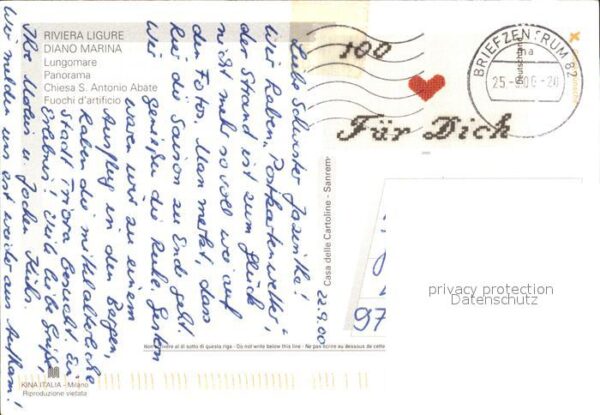 RIVIERA LIGURE
DIANO MARINA
Lungomare
Panorama
Chiesa S. Antonio Abate
Fuochi d'artificio
100
Für Dich
Deutschland
BRIEFZENTRUM 82
ma
25.-9.00-20
22.9.00
Liebe Schwester Jacintha!
Wir haben „Postkartenwetter",
der Strand ist zum Glück
nicht mehr so voll wie auf
den Fotos. Man merkt, dass
hier die Saison zu Ende geht.
Wir genießen die Ruhe. Gestern
waren wir zu einem
Ausflug in den Bergen,
haben die mittelalterliche
Stadt Triora besucht. Ein
Erlebnis! Viele liebe Grüße,
Ihre u. Jochen
Wir melden uns erst weiter aus !
Casa delle Cartoline - Sanremo
97
privacy protection
Datenschutz
Non scrivere al di sotto di questa riga - Do not write below this line - Ne pas écrire au dessous de cette
KINA ITALIA - Milano
Riproduzione vietata